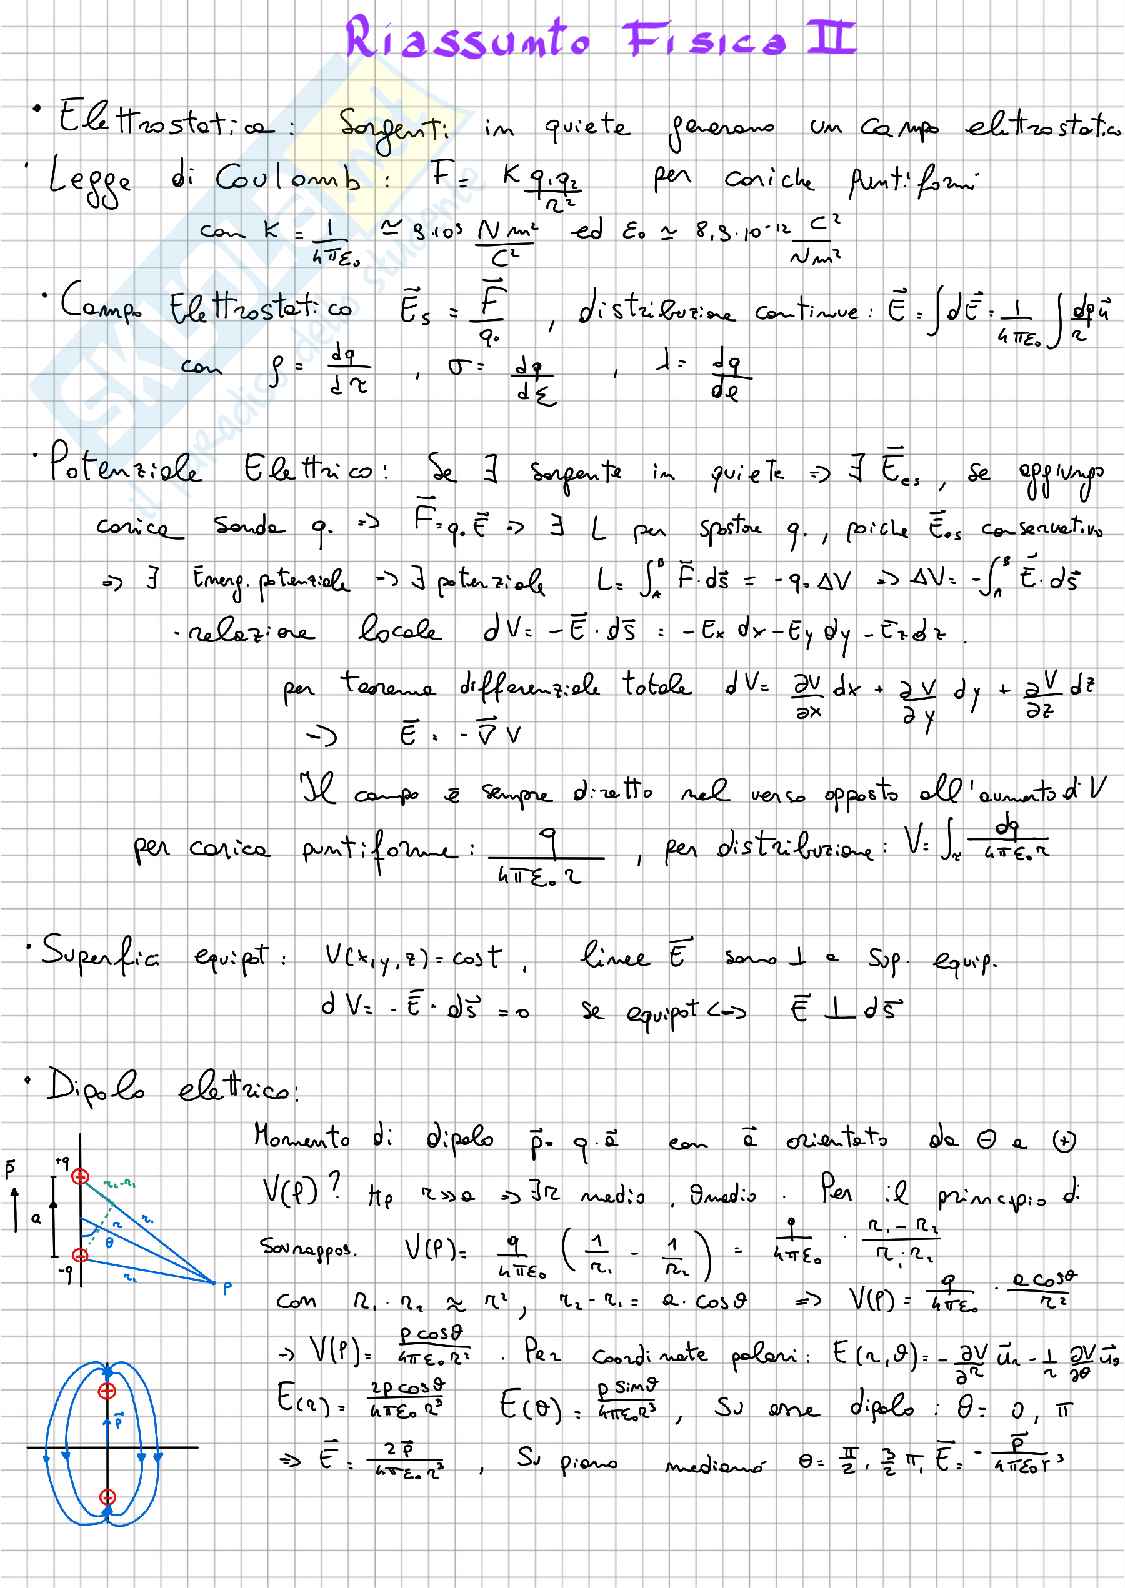 Riassunto Fisica II
• Elettrostatica: Sorgenti in quiete generano un campo elettrostatico
• Legge di Coulomb: F = K q₁q₂/r² per cariche puntiformi
con K = 1/4πε₀ ≃ 9·10⁹ Nm²/C² ed ε₀ ≃ 8,9·10⁻¹² C²/Nm²
• Campo Elettrostatico E⃗s = F⃗/q₀ , distribuzione continue: E⃗ = ∫dE⃗ = 1/4πε₀ ∫ dq u⃗/r
con ρ = dq/dτ , σ = dq/dΣ , λ = dq/dl
• Potenziale Elettrico: Se ∃ sorgente in quiete => ∃ E⃗es, se aggiungo
carica sonda q₀ => F⃗=q₀E⃗ => ∃ L per spostare q₀, poiche E⃗es conservativo
=> ∃ Energ. potenziale -> ∃ potenziale L = ∫_A^B F⃗·ds⃗ = -q₀ΔV => ΔV = -∫_A^B E⃗·ds⃗
· relazione locale dV = -E⃗·ds⃗ = -Ex dx - Ey dy - Ez dz.
per teorema differenziale totale dV = ∂V/∂x dx + ∂V/∂y dy + ∂V/∂z dz
-> E⃗ = -∇⃗V
Il campo è sempre diretto nel verso opposto all'aumento di V
per carica puntiforme: q/4πε₀r , per distribuzione: V = ∫τ dq/4πε₀r
• Superfici equipot: V(x,y,z) = cost, linee E⃗ sono ⊥ a sup. equip.
dV = -E⃗·ds⃗ = 0 se equipot <-> E⃗ ⊥ ds⃗
• Dipolo elettrico:
Momento di dipolo p⃗ = q·a⃗ con a⃗ orientato da ⊖ a ⊕
V(P)? Hp r>>a => ∃ r medio, θ medio. Per il principio di
Sovrappos. V(P) = q/4πε₀ (1/r₁ - 1/r₂) = q/4πε₀ · r₁-r₂/r₁·r₂
con r₁·r₂ ≈ r², r₂-r₁ = a·cosθ => V(P) = q/4πε₀ · a cosθ/r²
-> V(P) = p cosθ/4πε₀r² . Per coordinate polari: E(r,θ) = -∂V/∂r u⃗r - 1/r ∂V/∂θ u⃗θ
E(r) = 2p cosθ/4πε₀r³ E(θ) = p sinθ/4πε₀r³ , Su asse dipolo: θ = 0, π
=> E⃗ = 2p⃗/4πε₀r³ , Su piano mediano θ = π/2, 3/2 π, E⃗ = -p⃗/4πε₀r³
p⃗
+q
a
-q
r₂-r₁
r₁
r
θ
r₂
P
p⃗
SKUOLA.net
il paradiso dello studente